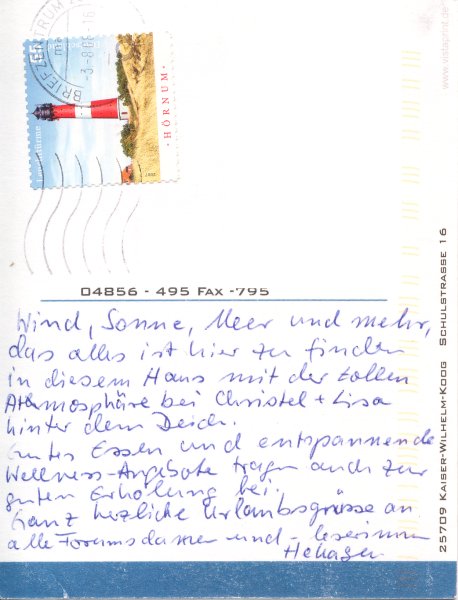 BRIEFZENTRUM
-3-8.08-16
55
Leuchttürme
HÖRNUM
2007
www.vistaprint.de
04856 - 495 FAX -795
Wind, Sonne, Meer und mehr,
das alles ist hier zu finden
in diesem Haus mit der tollen
Athmosphäre bei Christel + Lisa
hinter dem Deich.
Gutes Essen und entspannende
Wellness-Angebote tragen auch zur
guten Erholung bei.
Ganz herzliche Urlaubsgrüsse an
alle Forumsdamen und - leserinnen
25709 KAISER-WILHELM-KOOG SCHULSTRASSE 16